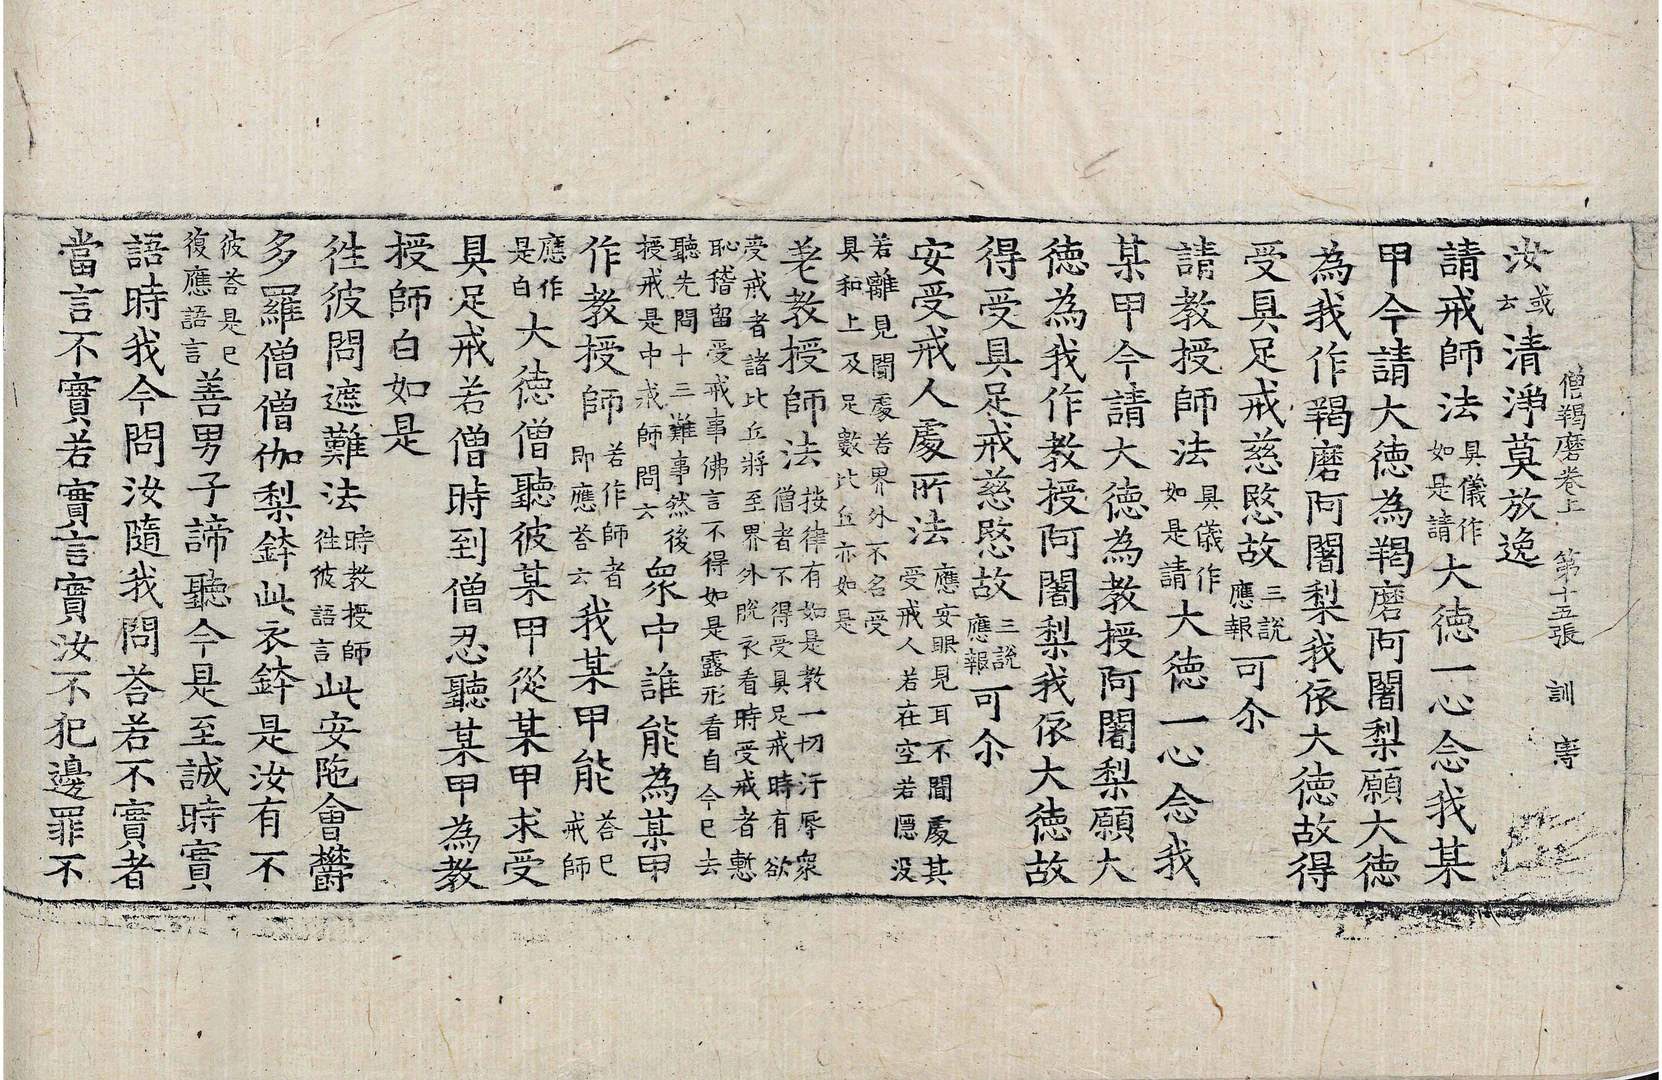 僧羯磨卷上 第十五張 訓 夀
汝或云清淨莫放逸
請戒師法具儀作如是請大德一心念我某
甲今請大德為羯磨阿闍梨願大德
為我作羯磨阿闍梨我依大德故得
受具足戒慈愍故三說應報可尒
請教授師法具儀作如是請大德一心念我
某甲今請大德為教授阿闍梨願大
德為我作教授阿闍梨我依大德故
得受具足戒慈愍故三說應報可尒
安受戒人處所法應安眼見耳不聞處其受戒人若在空若隱没
若離見聞處若界外不名受具和上及足數比丘亦如是
差教授師法按律有如是教一切汙辱衆僧者不得受具足戒時有欲
受戒者諸比丘將至界外脫衣看時受戒者慙恥稽留受戒事佛言不得如是露形看自今已去
聽先問十三難事然後授戒是中戒師問云衆中誰能為某甲
作教授師若作師者即應荅云我某甲能荅已戒師
應作是白大德僧聽彼某甲從某甲求受
具足戒若僧時到僧忍聽某甲為教
授師白如是
徃彼問遮難法時教授師徃彼語言此安陁會欝
多羅僧僧伽梨鉢此衣鉢是汝有不
彼荅是已復應語言善男子諦聽今是至誠時實
語時我今問汝隨我問荅若不實者
當言不實若實言實汝不犯邊罪不